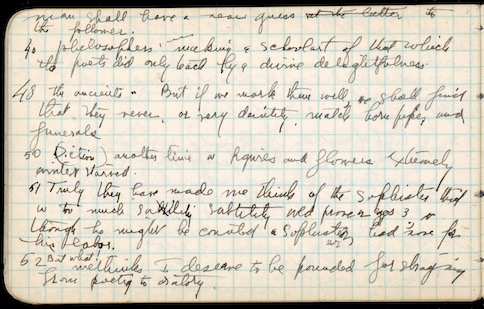 man shall have a near guess at the latter to
the follower.
40 philosophers making a school art of that which
the poets did only teach by a divine delightfulness.
48 the ancients - But if we mark them well we shall find
that they never, or very daintily, match horn pipes and
funerals
50 (Diction) another time w figures and flowers extremely
winter starved.
51 Truly they have made me think of the sophister that
w to much subtlety
though he might be counted a sophister, had none for
his labor.
52 But what! methinks I deserve to be pounded for straying
from poetry to oratory.